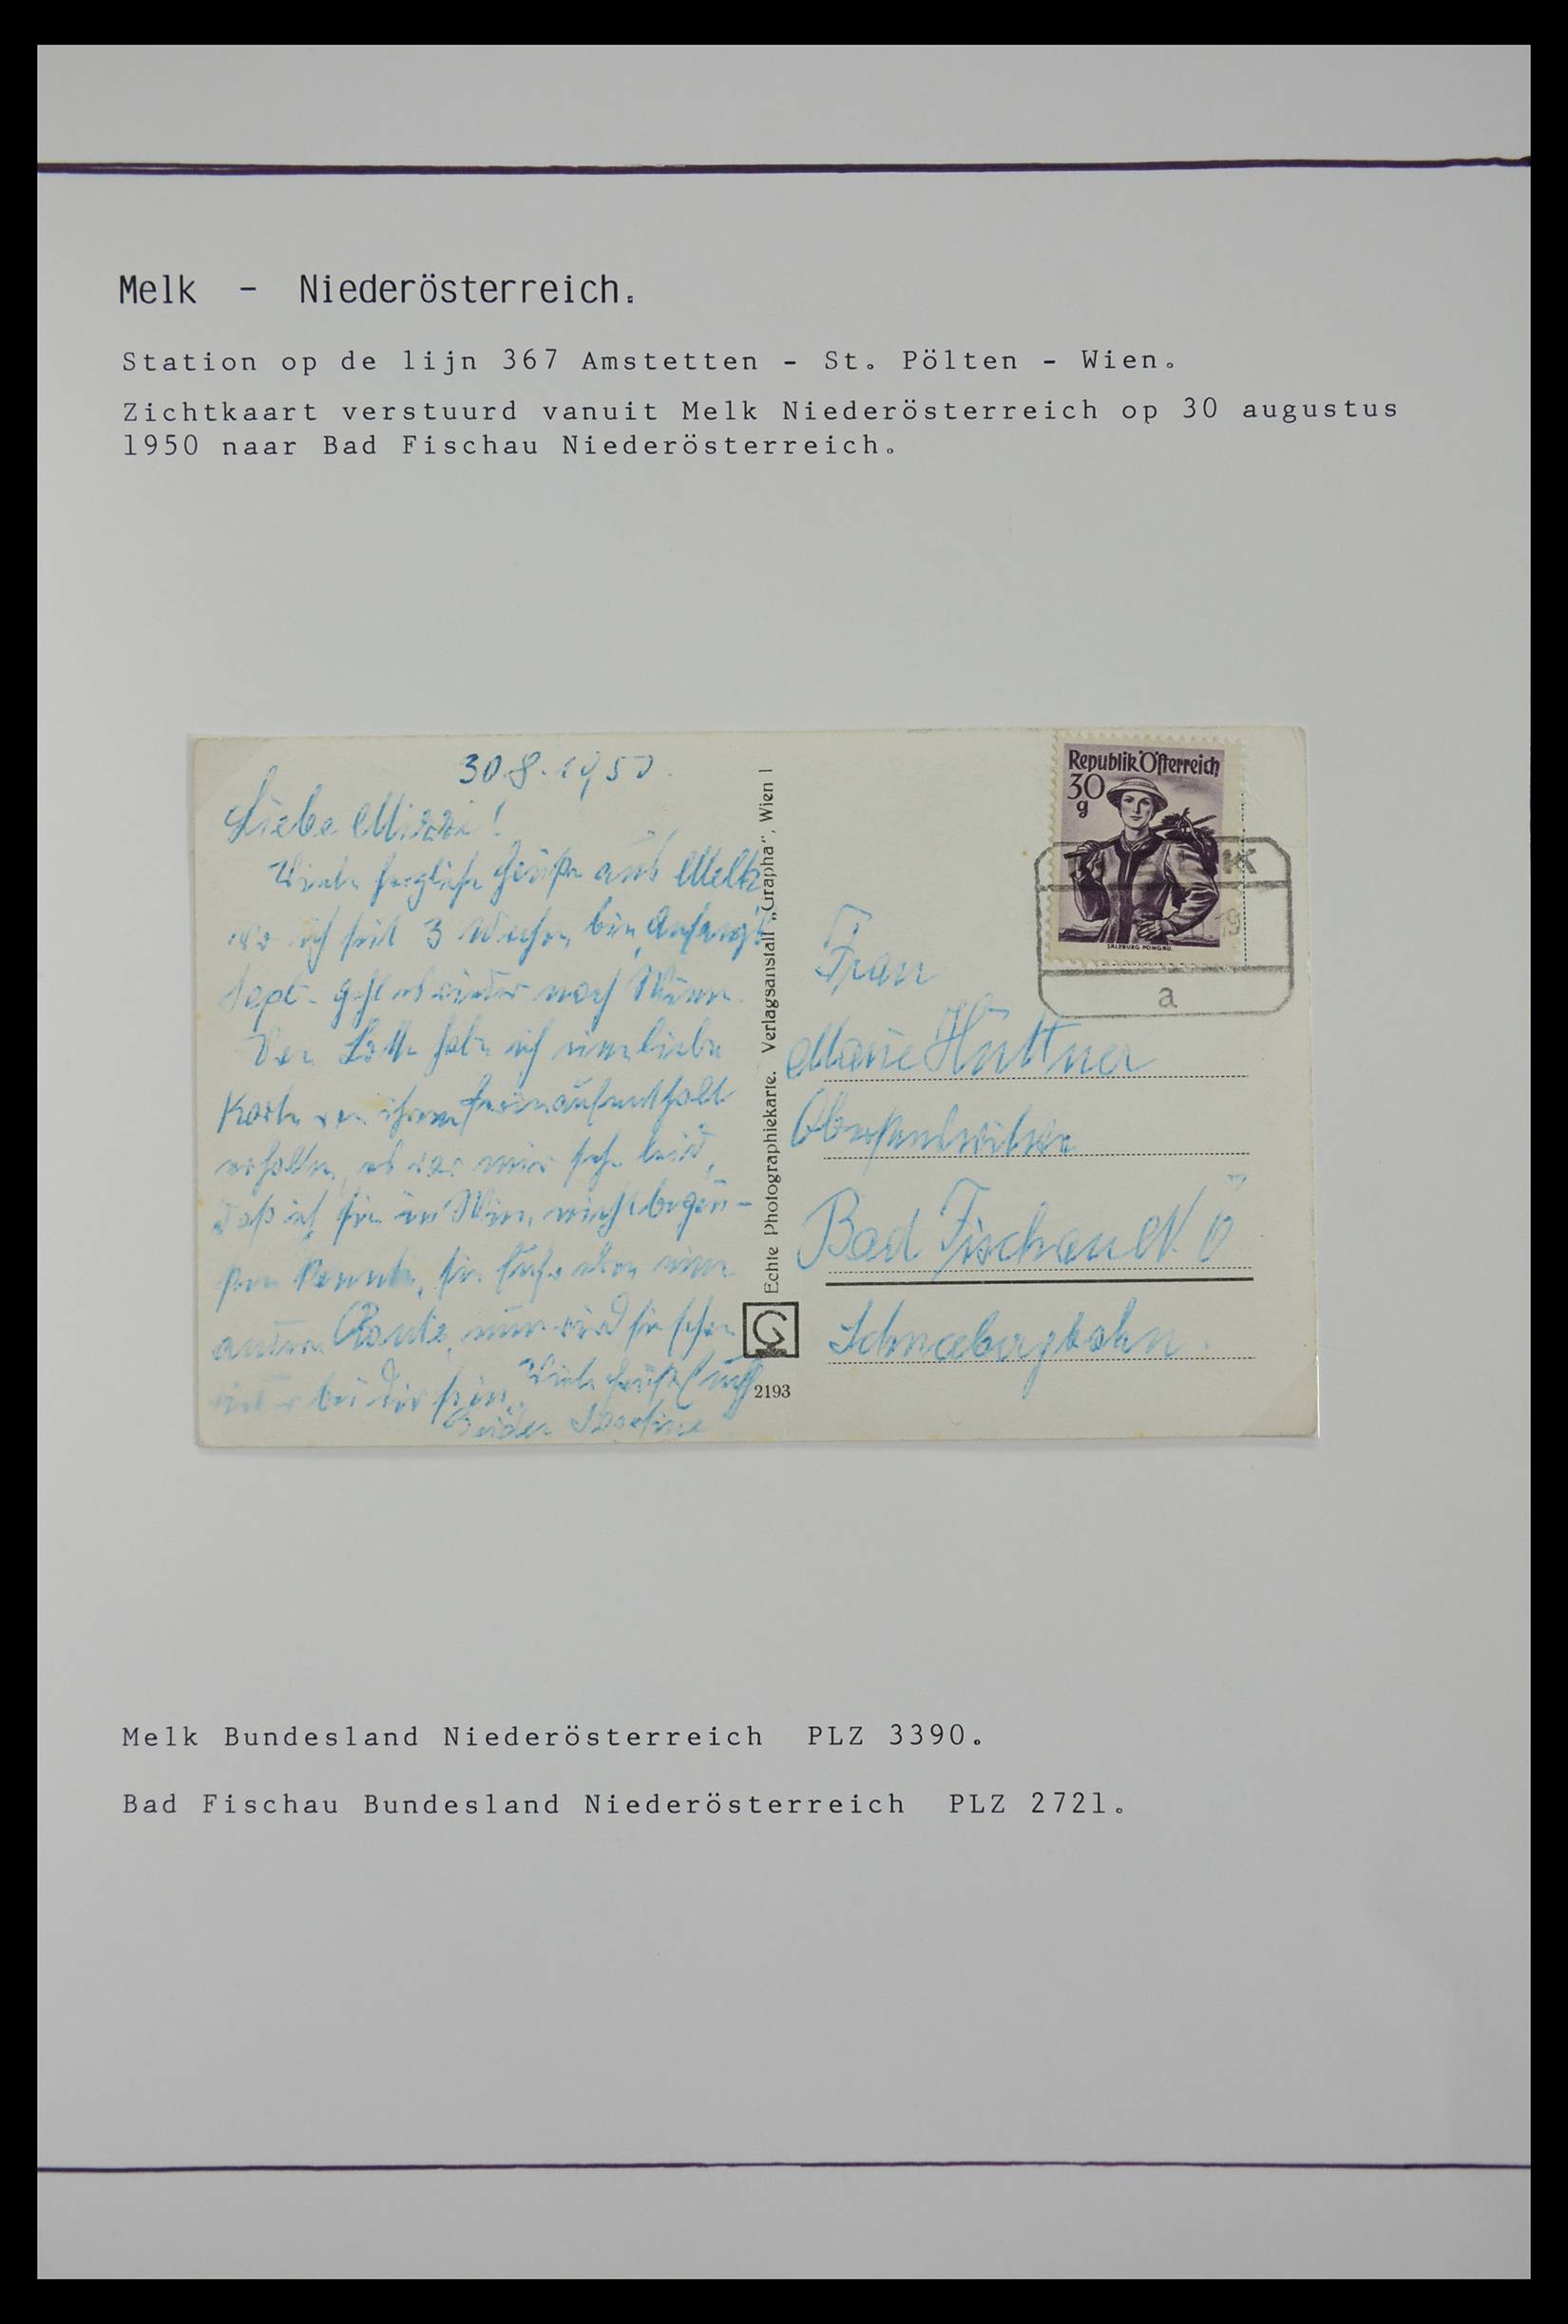 Melk - Niederösterreich.
Station op de lijn 367 Amstetten - St. Pölten - Wien.
Zichtkaart verstuurd vanuit Melk Niederösterreich op 30 augustus
1950 naar Bad Fischau Niederösterreich.
30.8.1950.
Liebe Mizzi!
Viele herzliche Grüße aus Melk
wo ich seit 3 Wochen bin, Anfangs
Sept. geht es wieder nach Wien.
Von Lotte habe ich eine liebe
Karte von ihrem Ferienaufenthalt
erhalten, es war mir sehr leid,
daß ich sie in Wien nicht begrü-
ßen konnte, sie fuhr eben eine
andere Route, nun wird sie schon
wieder bei Dir sein.
Viele Grüße auch
Echte Photographiekarte. Verlagsanstalt „Grapha", Wien I
G
2193
Republik Österreich
30
g
SALZBURG PONGAU
K
19
a
Frau
Marie Hüttner
Bad Fischau N.Ö
Schneebergbahn.
Melk Bundesland Niederösterreich PLZ 3390.
Bad Fischau Bundesland Niederösterreich PLZ 2721.